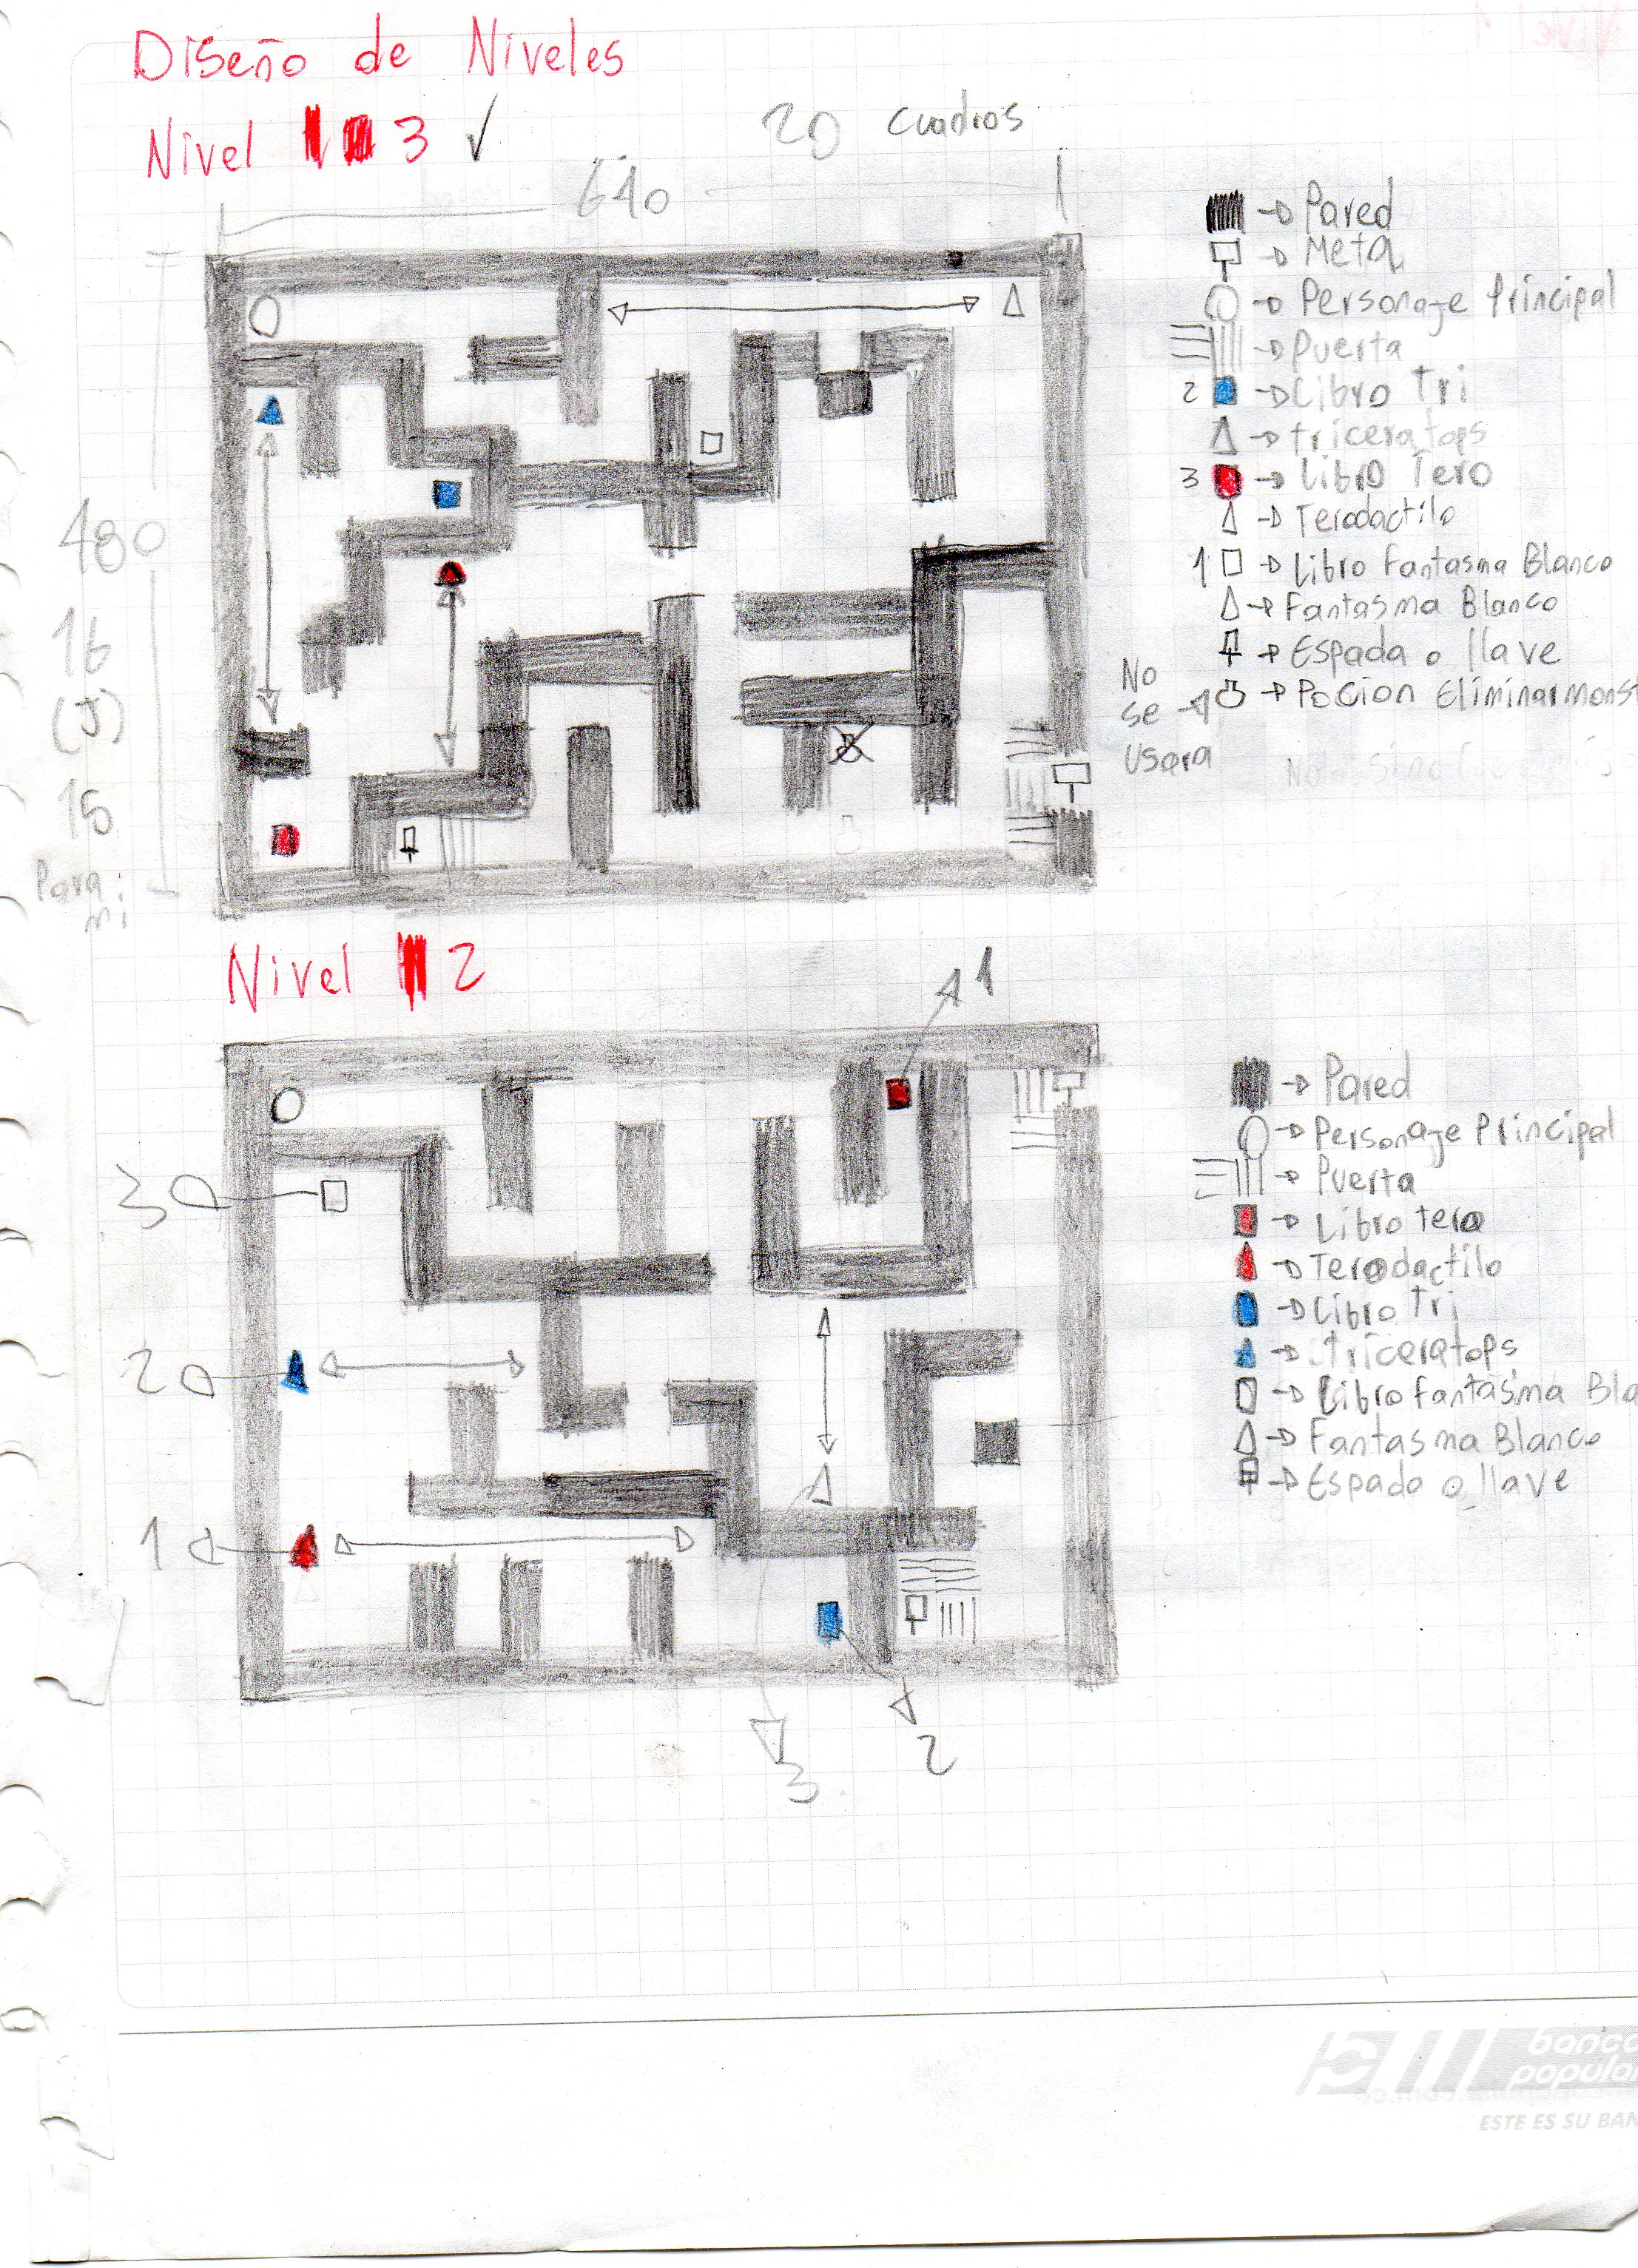 Diseño de Niveles
Nivel 3 ✓
20 cuadros
640
480
16
(J)
15
Para
mi
→ Pared
→ Meta
→ Personaje Principal
→ Puerta
2 → Libro Tri
→ triceratops
3 → Libro Tero
→ Terodactilo
1 → Libro Fantasma Blanco
→ Fantasma Blanco
→ Espada o llave
→ Pocion Eliminar monst
No
se
Usara
Nivel 2
1
3
2
1
3
2
→ Pared
→ Personaje Principal
→ Puerta
→ Libro tero
→ Terodactilo
→ Libro Tri
→ triceratops
→ Libro Fantasma Bla
→ Fantasma Blanco
→ Espada o llave
banco
popular
ESTE ES SU BAN